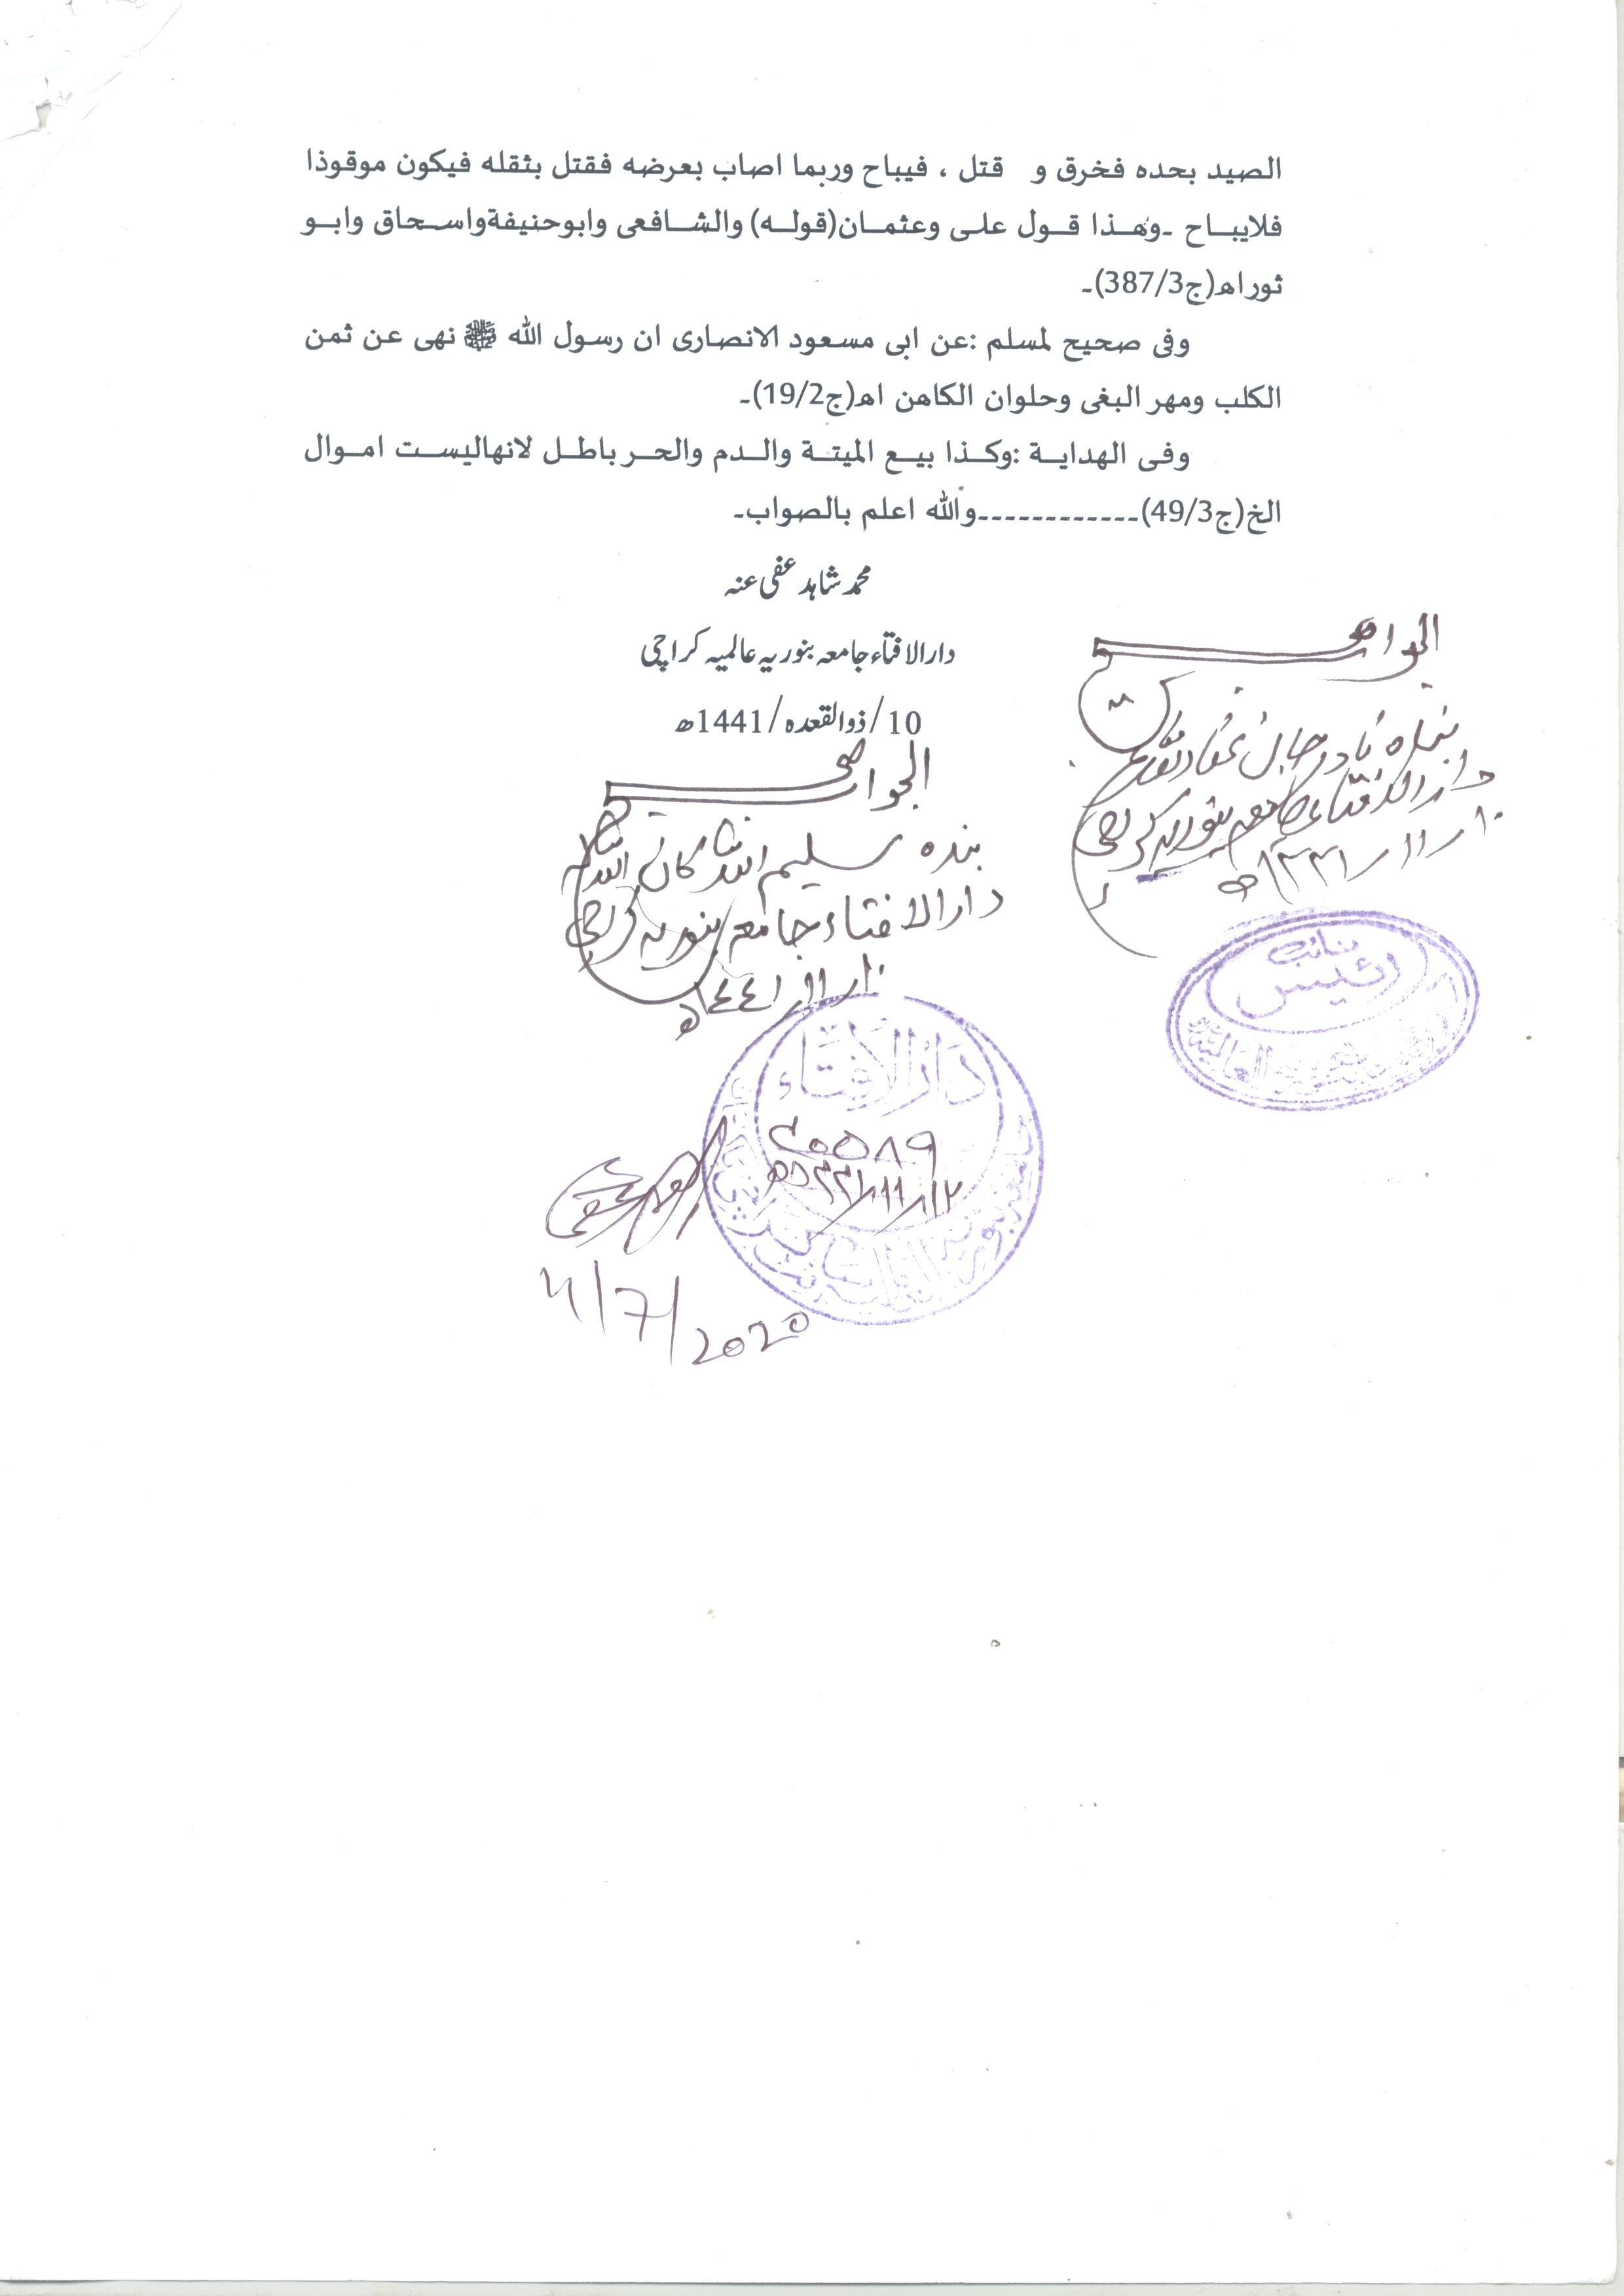 الصيد بحده فخرق و قتل ، فيباح وربما اصاب بعرضه فقتل بثقله فيكون موقوذا
فلايباح ۔وهذا قول على وعثمان(قوله) والشافعى وابوحنيفةواسحاق وابو
ثوراھ(ج387/3)۔
وفى صحيح لمسلم :عن ابى مسعود الانصارى ان رسول الله ﷺ نهى عن ثمن
الكلب ومهر البغى وحلوان الكاهن اھ(ج19/2)۔
وفى الهداية :وكذا بيع الميتة والدم والحر باطل لانهاليست اموال
الخ(ج49/3)------------والله اعلم بالصواب۔
محمد شاہد عفی عنہ
دارالافتاء جامعہ بنوریہ عالمیہ کراچی
10/ذوالقعدہ/1441ھ
الجواب صحیح
بندہ نادر جان
دارالافتاء جامعہ بنوریہ کراچی
۱۰/۱۱/۱۴۴۱ھ
الجواب صحیح
بندہ سلیم اللہ کان اللہ لہ
دارالافتاء جامعہ بنوریہ کراچی
۱۰/۱۱/١٤٤١ھ
نائب
رئيس
العالمية
دَارُالاِفتَاء
۴۰۵۸۹
۱۲/۱۱/۴۱
/7/2020